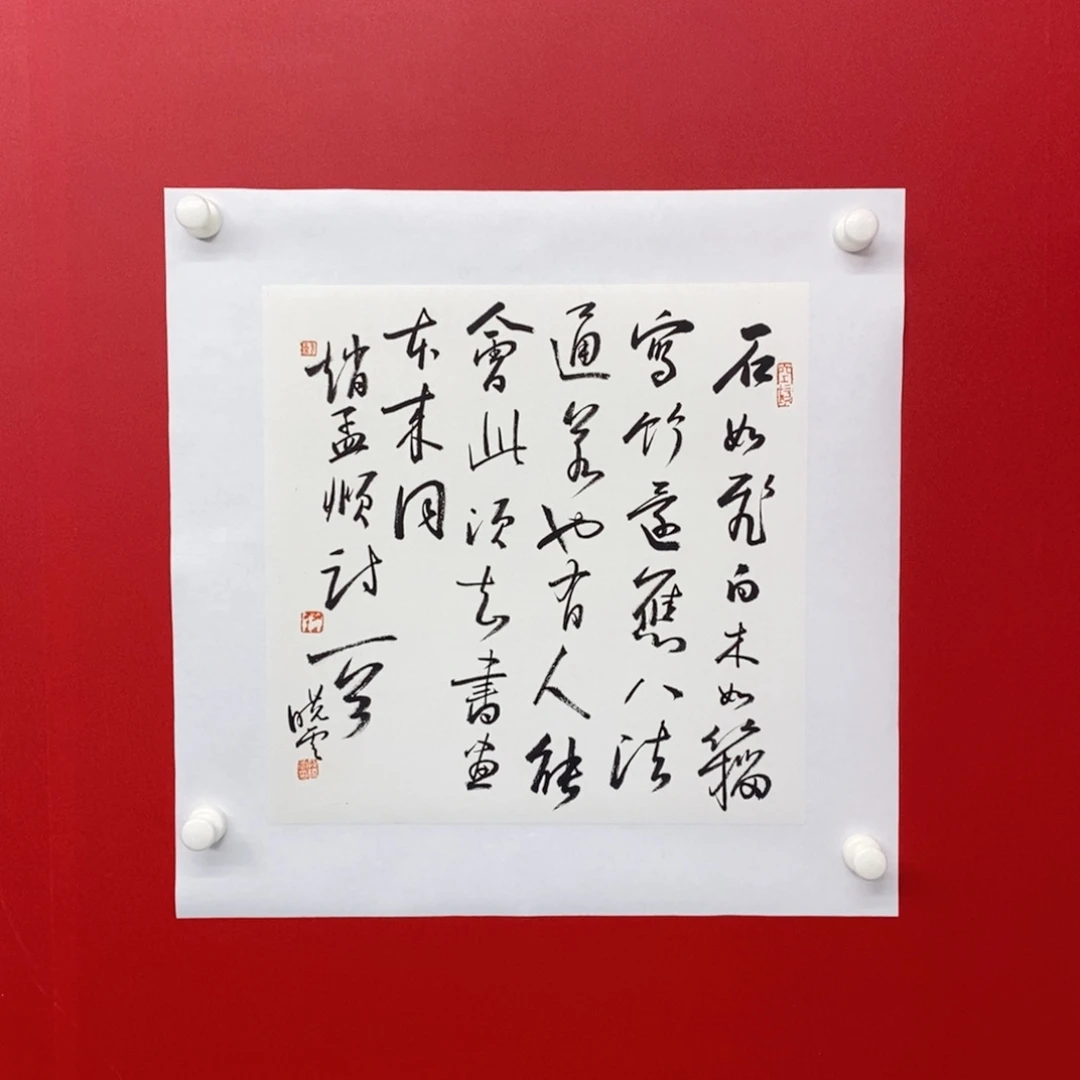 石如飛白木如籀
寫竹還應八法
通若也有人能
會此須知書畫
本來同
趙孟頫詩一首
曉雲